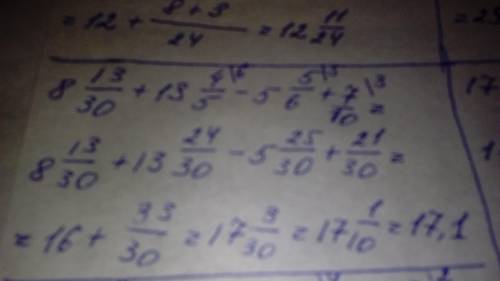 = 12 + (8+3)/24 = 12 11/24
= 2
8 13/30 + 13 4\6/5 - 5 5\5/6 + 7\3/10 =
17
8 13/30 + 13 24/30 - 5 25/30 + 21/30 =
1
= 16 + 33/30 = 17 3/30 = 17 1/10 = 17,1